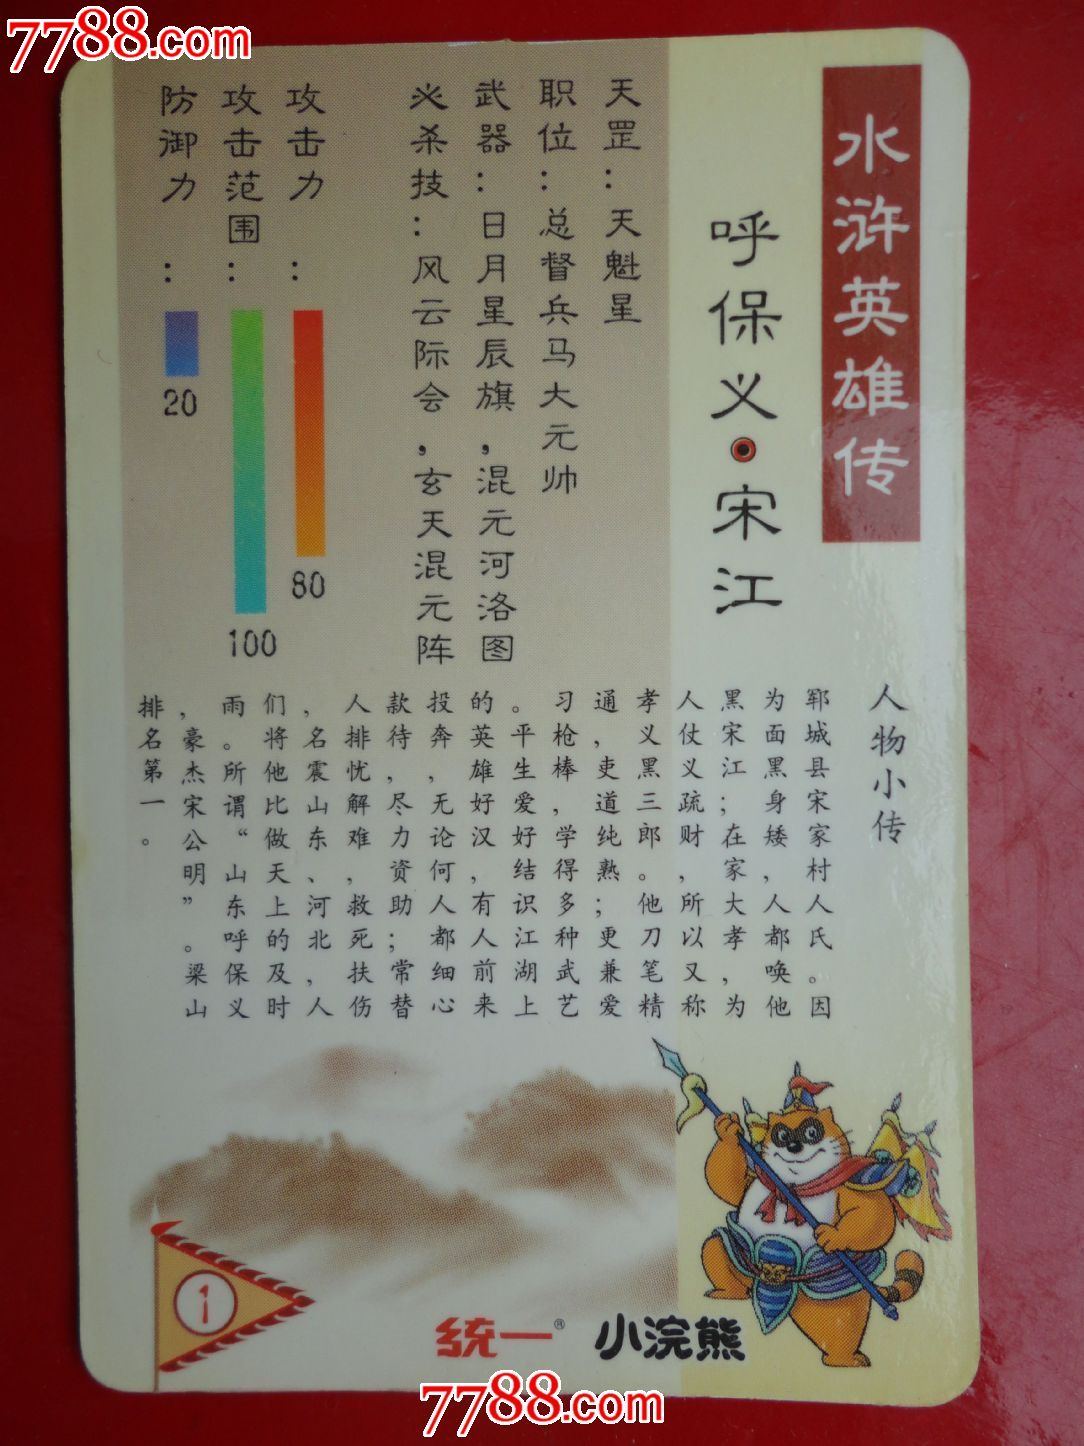 7788.com
水浒英雄传
呼保义·宋江
天罡：天魁星
职位：总督兵马大元帅
武器：日月星辰旗，混元河洛图
必杀技：风云际会，玄天混元阵
攻击力：
80
攻击范围：
100
防御力：
20
人物小传
郓城县宋家村人氏。因
为面黑身矮，人都唤他
黑宋江；在家大孝，为
人仗义疏财，所以又称
孝义黑三郎。他刀笔精
通，吏道纯熟；更兼爱
习枪棒，学得多种武艺
。平生爱好结识江湖上
的英雄好汉，有人前来
投奔，无论何人都细心
款待，尽力资助；常替
人排忧解难，救死扶伤
，名震山东、河北，人
们将他比做天上的及时
雨。所谓“山东呼保义
，豪杰宋公明”。梁山
排名第一。
1
统一® 小浣熊
7788.com